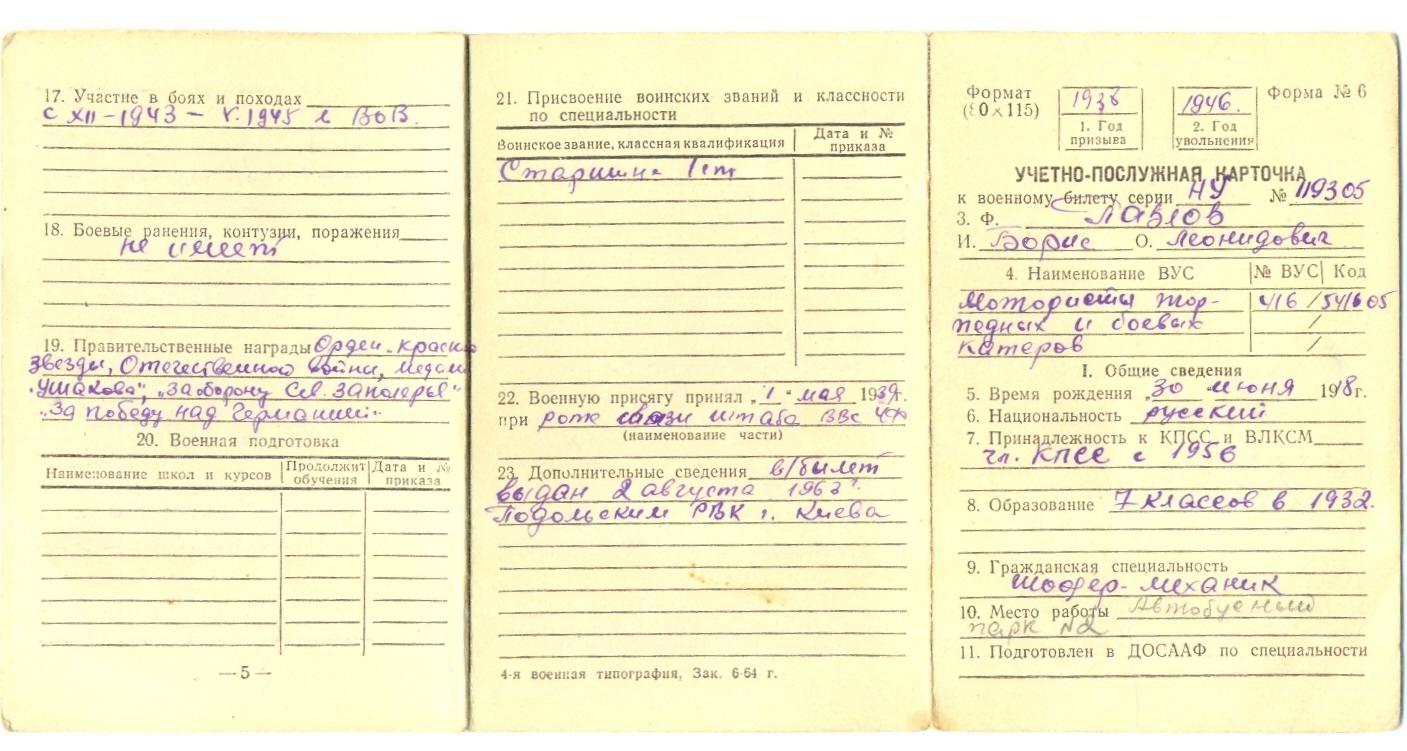 17. Участие в боях и походах
с XII-1943 - V.1945 г. ВОВ.
18. Боевые ранения, контузии, поражения
не имеет
19. Правительственные награды Орден „Красной
Звезды, Отечественной войны, медали
„Ушакова", „За оборону Сов. Заполярья"
„За победу над Германией".
20. Военная подготовка
Наименование школ и курсов Продолжит обучения Дата и № приказа
— 5 —
21. Присвоение воинских званий и классности
по специальности
Воинское звание, классная квалификация Дата и № приказа
Старшина 1 ст
22. Военную присягу принял „1" мая 1939г.
при роте связи штаба ВВС ЧФ
(наименование части)
23. Дополнительные сведения в/билет
выдан 2 августа 1963г.
Подольским РВК г. Киева
4-я военная типография, Зак. 6-64 г.
Формат 1938 1946. Форма № 6
(80×115) 1. Год призыва 2. Год увольнения
УЧЕТНО-ПОСЛУЖНАЯ КАРТОЧКА
к военному билету серии НУ № 119305
3. Ф.
И. Борис О. Леонидович
4. Наименование ВУС № ВУС Код
Мотористы тор- 416 / 541605
педных и боевых /
катеров /
I. Общие сведения
5. Время рождения „30 июня 1918г.
6. Национальность русский
7. Принадлежность к КПСС и ВЛКСМ
чл. КПСС с 1956
8. Образование 7 классов в 1932.
9. Гражданская специальность
Шофер-механик
10. Место работы Автобусный
парк №2
11. Подготовлен в ДОСААФ по специальности